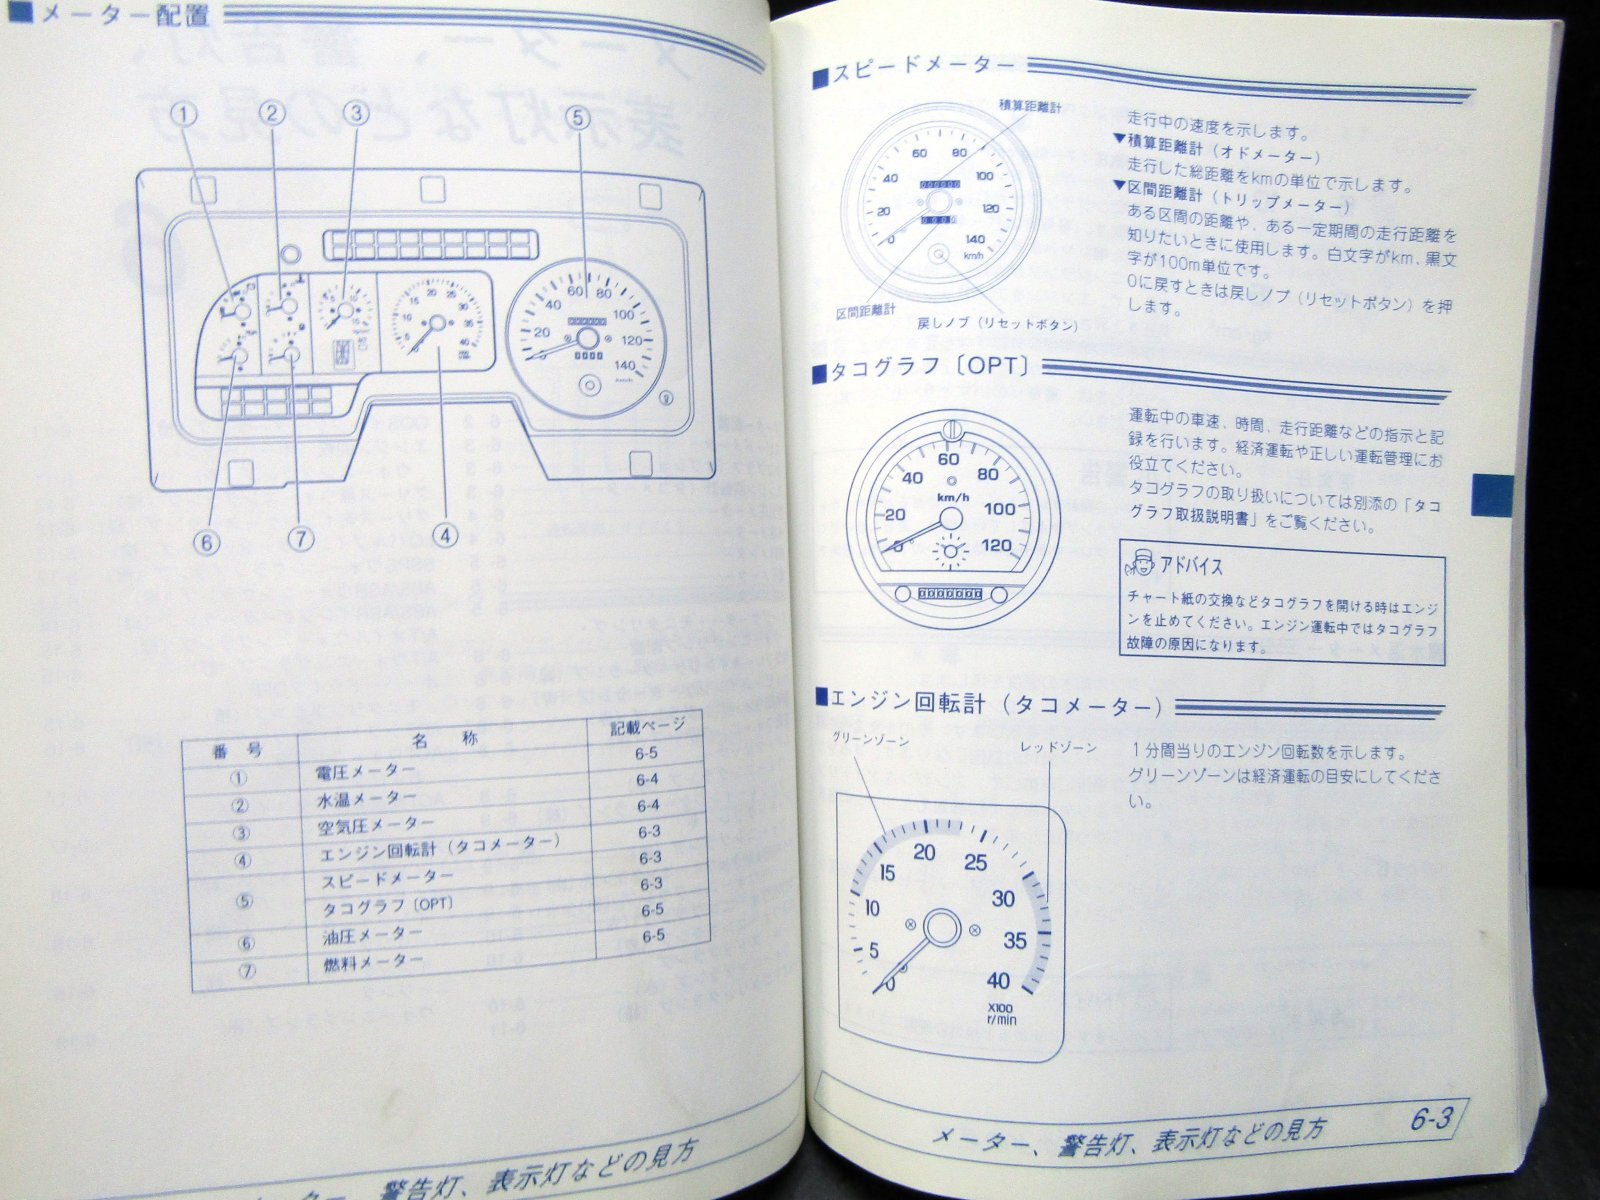 ■メーター配置
① ② ③ ⑤
0 5 10 15
0 5 10 15 20 25 30 35 40
0 20 40 60 80 100 120 140
⑥ ⑦ ④
番号 名称 記載ページ
① 電圧メーター 6-5
② 水温メーター 6-4
③ 空気圧メーター 6-4
④ エンジン回転計（タコメーター） 6-3
⑤ スピードメーター 6-3
タコグラフ〔OPT〕 6-3
⑥ 油圧メーター 6-5
⑦ 燃料メーター 6-5
メーター、警告灯、表示灯などの見方
■スピードメーター
積算距離計
0 20 40 60 80 100 120 140
km/h
区間距離計
戻しノブ（リセットボタン）
走行中の速度を示します。
▼積算距離計（オドメーター）
走行した総距離をkmの単位で示します。
▼区間距離計（トリップメーター）
ある区間の距離や、ある一定期間の走行距離を
知りたいときに使用します。白文字がkm、黒文
字が100m単位です。
0に戻すときは戻しノブ（リセットボタン）を押
します。
■タコグラフ〔OPT〕
0 20 40 60 80 100 120
km/h
運転中の車速、時間、走行距離などの指示と記
録を行います。経済運転や正しい運転管理にお
役立てください。
タコグラフの取り扱いについては別添の「タコ
グラフ取扱説明書」をご覧ください。
アドバイス
チャート紙の交換などタコグラフを開ける時はエンジ
ンを止めてください。エンジン運転中ではタコグラフ
故障の原因になります。
■エンジン回転計（タコメーター）
グリーンゾーン
レッドゾーン
0 5 10 15 20 25 30 35 40
X100
r/min
1分間当りのエンジン回転数を示します。
グリーンゾーンは経済運転の目安にしてくださ
い。
メーター、警告灯、表示灯などの見方
6-3